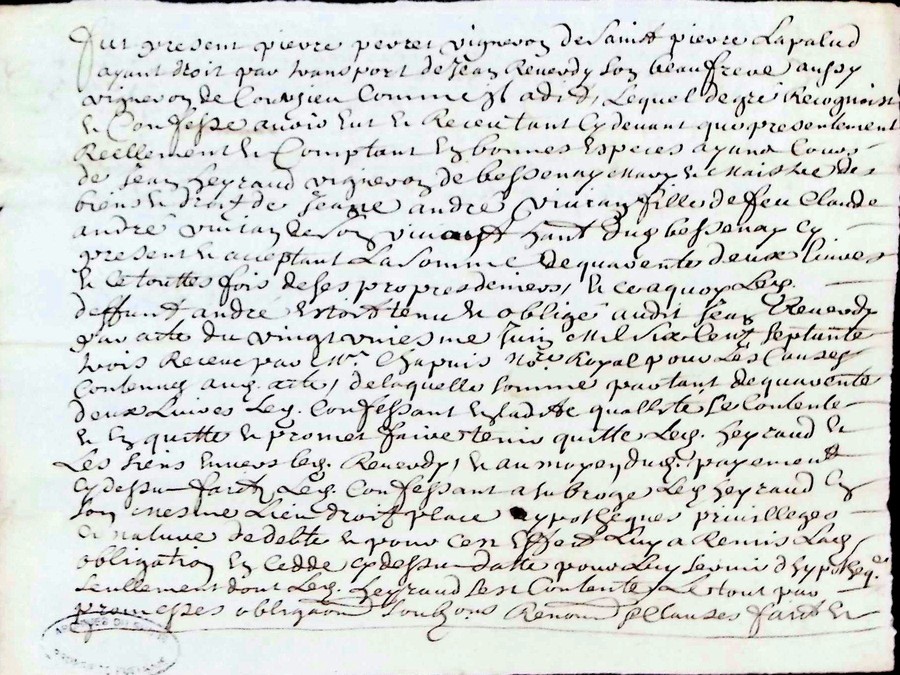 Fut present pierre perret vigneron de Saint pierre Lapalud
ayant droit par transport de Jean Reverdy Son beaufrere aussy
vigneron de Courzieu Comme Il adit, Lequel degré Recognoist
et Confesse avoir eut et Receu tant Cydevant que presentement
Reellement et Comptant En bonnes Especes ayant Cours
de Jean Leyraud vigneron de bessenay mary et Maistre des
biens et droits de Jeanne andré vivian fille de feu Claude
andré vivian de Son vivant hant dud bessenay Cy
present et acceptant La Somme de quarente deux Livres
et ce touttes fois de ses propres deniers, et ce a quoy Led.
deffunt andre Estoit tenu et obligé audit Jean Reverdy
par acte du vingt uniesme Juin Mil Six Cent Septante
trois Receue par Me. Chapuis Nore. Royal pour Les Causes
Contenues aud. acte, de laquelle Somme partant de quarente
deux Livres Led. Confessant En ladite quallité Se Contente
et En quitte et promet faire tenir quitte Led. Leyraud et
Les Siens Envers led. Reverdy, et au moyen dud. payement
Cydessus faict Led. Confessant a Subrogé Led Leyraud En
Son mesme Lieu droit place hypotheques privilleges
et nature de debte et pour Cest Effect Luy a Remis Lad
obligation En Cedde Cydessus datte pour Luy Servir d'hypotheq.
Seullement dont Led. Leyraud Sest Contenté, Le tout par
promesses obligaons Soubzons Renon & Clauses faict et
ARCHIVES DU RHONE